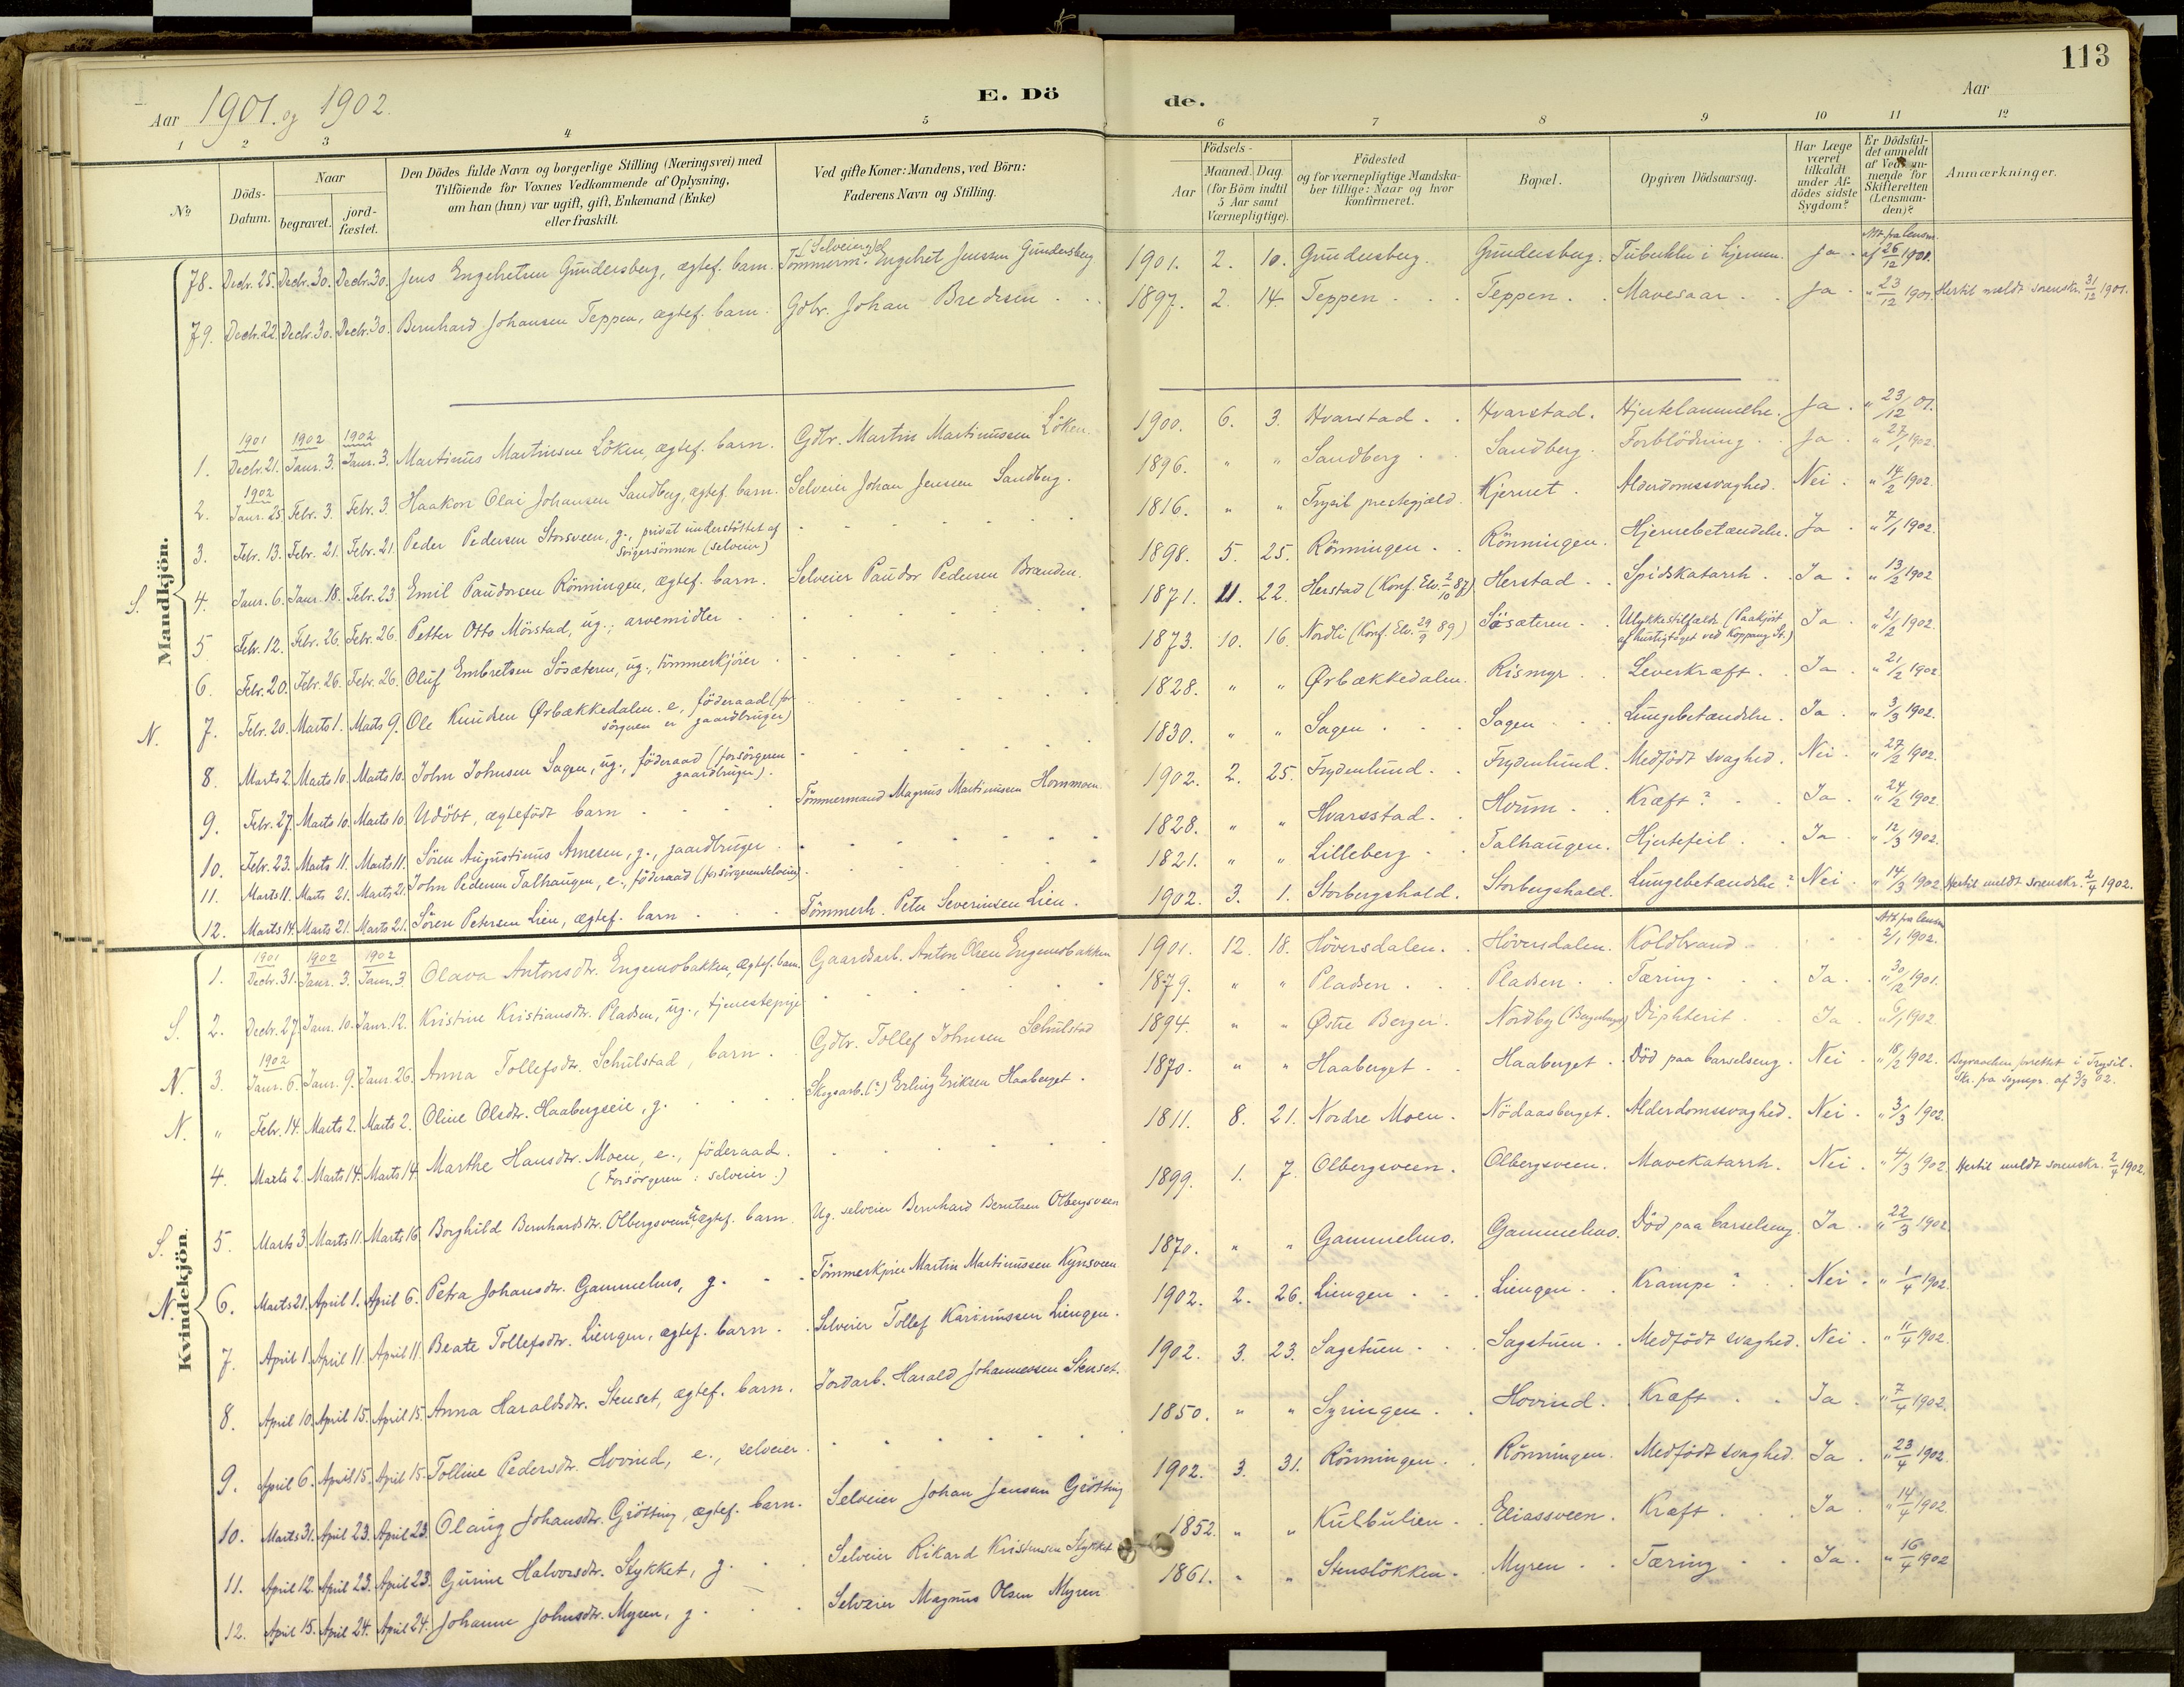 113
Aar 1901. og 1902.
E. Dö
de.
Aar
1 2 3 4 5 6 7 8 9 10 11 12
No
Döds-Datum.
Naar
begravet.
jord-fæstet.
Den Dödes fulde Navn og borgerlige Stilling (Næringsvei) med
Tilföiende for Voxnes Vedkommende af Oplysning,
om han (hun) var ugift, gift, Enkemand (Enke)
eller fraskilt.
Ved gifte Koner: Mandens, ved Börn:
Faderens Navn og Stilling.
Födsels-
Aar
Maaned. Dag.
(for Börn indtil
5 Aar samt
Værnepligtige).
Födested
og for værnepligtige Mandska-
ber tillige: Naar og hvor
konfirmeret.
Bopæl.
Opgiven Dödsaarsag.
Har Læge
været
tilkaldt
under Af-
dödes sidste
Sygdom?
Er Dödsfal-
det anmeldt
af Vedkom-
mende for
Skifteretten
(Lensman-
den)?
Anmærkninger.
Mandkjön.
78. Decbr. 25. Decbr. 30. Decbr. 30. Jens Engebretsen Gundersberg, ægtef. barn. (Selveier) Tömmerm. Engebret Jenssen Gundersberg 1901. 2. 10. Gundersberg. Gundersberg. Tuberkler i hjernen. Ja. Att. fra lensm. af 26/12 1901.
79. Decbr. 22. Decbr. 30. Decbr. 30. Bernhard Johansen Teppen, ægtef. barn. Gdbr. Johan Bredesen 1897. 2. 14. Teppen. Teppen. Mavesaar. Ja. " 23/12 1901. Hertil meldt sorenskr. 31/12 1901.
1901 1902 1902
1. Decbr. 21. Janr. 3. Janr. 3. Martinus Martinsen Löken, ægtef. barn. Gdbr. Martin Martinussen Löken. 1900. 6. 3. Hvarstad. Hvarstad. Hjertelammelse. Ja. " 23/12 01.
1902
2. Janr. 25. Febr. 3. Febr. 3. Haakon Olai Johansen Sandberg, ægtef. barn. Selveier Johan Jenssen Sandberg. 1896. " " Sandberg. Sandberg. Forblödning. Ja. " 27/1 1902.
3. Febr. 13. Febr. 21. Febr. 21. Peder Pedersen Storsveen, g., privat understöttet af svigersönnen (selveier) 1816. " " Trysil prestegjæld. Kjernet. Alderdomssvaghed. Nei. " 14/2 1902.
S. 4. Janr. 6. Janr. 18. Febr. 23. Emil Paudorsen Rönningen, ægtef. barn. Selveier Paudor Pedersen Brænden. 1898. 5. 25. Rönningen. Rönningen. Hjernebetændelse. Ja. " 7/1 1902.
5 Febr. 12. Febr. 26. Febr. 26. Petter Otto Mörstad, ug., arvemidler. 1871. 11. 22. Herstad (Konf. Elv. 2/10 87) Herstad. Spidskatarrh. Ja. " 13/2 1902
6. Febr. 20. Febr. 26. Febr. 26. Oluf Embretsen Sösæteren, ug., tömmerkjörer. 1873. 10. 16. Nordli (Konf. Elv. 29/9 89) Sösæteren. Ulykkestilfælde (Paakjört af hurtigtoget ved Koppang St.) Ja. " 21/2 1902.
N. 7. Febr. 20. Marts 1. Marts 9. Ole Knudsen Ørbækkedalen. e., föderaad (forsörgeren er gaardbruger) 1828. " " Ørbækkedalen. Rismyr. Leverkræft. Ja. " 21/2 1902
8. Marts 2. Marts 10. Marts 10. John Johnsen Sagen, ug., föderaad (forsörgeren gaardbruger). 1830. " " Sagen. Sagen. Lungebetændelse. Ja. " 3/3 1902.
9. Febr. 27. Marts 10. Marts 10. Udöbt, ægtefödt barn. Tömmermand Magnus Martinussen Hornmoen. 1902. 2. 25. Frydenlund. Frydenlund. Medfödt svaghed. Nei. " 27/2 1902.
10. Febr. 23. Marts 11. Marts 11. Sören Augustinus Arnesen, g., gaardbruger. 1828. " " Hvarsstad. Hvum. Kræft? Ja. " 24/2 1902.
11. Marts 11. Marts 21. Marts 21. John Pedersen Talhaugen, e., föderaad (forsörgeren selveier). 1821. " " Lilleberg. Talhaugen. Hjertefeil. Ja. " 12/3 1902.
12. Marts 14. Marts 21. Marts 21. Sören Petersen Lien, ægtef. barn. Tömmerh. Peter Severinsen Lien. 1902. 3. 1. Storbergshold. Storbergshold. Lungebetændelse? Nei. " 14/3 1902. Hertil meldt sorenskr. 2/4 1902.
Kvindekjön.
1901 1902 1902
1. Decbr. 31. Janr. 3. Janr. 3. Olava Antonsdtr. Engemobakken, ægtef. barn. Gaardarb. Anton Olsen Engemobakken 1901. 12. 18. Höversdalen. Höversdalen. Koldbrand. Att. fra lensm. 2/1 1902.
S. 2. Decbr. 27. Janr. 10. Janr. 12. Kristine Kristiansdtr. Pladsen, ug., tjenestepige 1879. " " Pladsen. Pladsen. Tæring. Ja. " 30/12 1901.
1902
N. 3. Janr. 6. Janr. 9. Janr. 26. Anna Tollefsdtr. Schulstad, barn. Gdbr. Tollef Johnsen Schulstad 1894. " " Østre Berger. Nordby (Bergerberget) Diphterit. Ja. " 6/1 1902
N. " Febr. 14. Marts 2. Marts 2. Oline Olsdtr. Haabergseie, g. Skogsarb. (?) Erling Eriksen Haaberget. 1870. " " Haaberget. Haaberget. Död paa barselseng. Nei. " 18/2 1902. Begravelsen forrettet i Trysil. Skr. fra sognepr. af 3/3 02.
4. Marts 2. Marts 14. Marts 14. Marthe Hansdtr. Moen, e., föderaad. (Forsörgeren: selveier.) 1811. 8. 21. Nordre Moen. Nödaasberget. Alderdomssvaghed. Nei. " 3/3 1902.
S. 5. Marts 3. Marts 11. Marts 16. Borghild Bernhardsdtr. Olbergsveen, uægtef. barn. Ug. selveier Bernhard Berntsen Olbergsveen 1899. 1. 7. Olbergsveen. Olbergsveen. Mavekatarrh. Nei. " 4/3 1902. Hertil meldt sorenskr. 2/4 1902.
N. 6. Marts 21. April 1. April 6. Petra Johansdtr. Gammelmo, g. Tömmerkjörer Martin Martinussen Kynsveen 1870. " " Gammelmo. Gammelmo. Död paa barselseng. Ja. " 22/3 1902.
7. April 1. April 11. April 11. Beate Tollefsdtr. Liengen, ægtef. barn. Selveier Tollef Karinussen Liengen. 1902. 2. 26. Liengen. Liengen. Krampe? Nei. " 1/4 1902.
8. April 10. April 15. April 15. Anna Haraldsdtr. Stenset, ægtef. barn. Jordarb. Harald Johannessen Stenset. 1902. 3. 23. Sagstuen. Sagstuen. Medfödt svaghed. Nei. " 11/4 1902.
9. April 6. April 15. April 15. Tolline Pedersdtr. Hovind, e., selveier. 1850. " " Syringen. Hovind. Kræft. Ja. " 7/4 1902.
10. Marts 31. April 23. April 23. Olaug Johansdtr. Grötting, ægtef. barn. Selveier Johan Jensen Grötting 1902. 3. 31. Rönningen. Rönningen. Medfödt svaghed. Ja. " 23/4 1902.
11. April 12. April 23. April 23. Gurine Halvorsdtr. Stykket, g. Selveier Rikard Kristensen Stykket 1852. " " Kulbulien. Eliassveen. Kræft. Ja. " 14/4 1902.
12. April 15. April 24. April 24. Johanne Johnsdtr. Myren, g. Selveier Magnus Olsen Myren 1861. " " Stenslökken. Myren. Tæring. Ja. " 16/4 1902